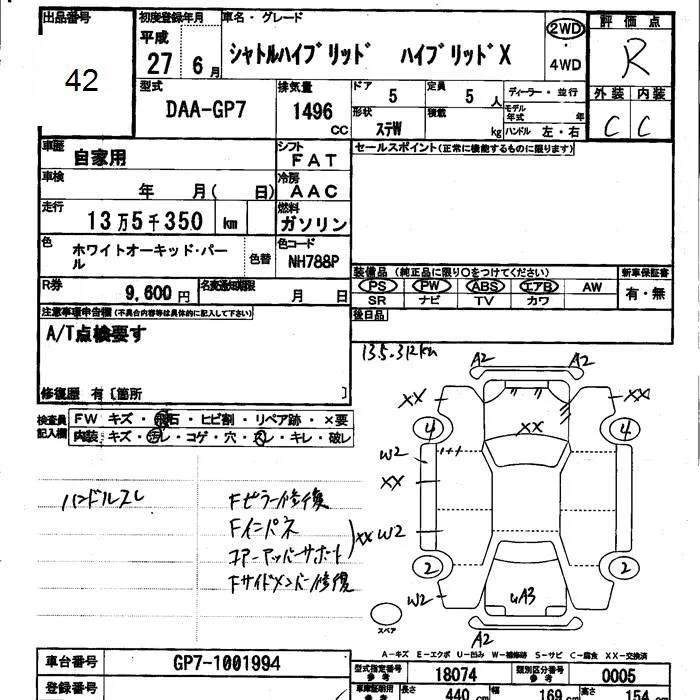 出品番号
42
初度登録年月
平成
27 6月
車名・グレード
シャトルハイブリッド ハイブリッドX
2WD
・
4WD
評価点
R
外装 内装
C C
型式
DAA-GP7
排気量
1496
CC
ドア
5
定員
5 人
形状
ステW
積載
kg
ディーラー・並行
モデル年式
年
ハンドル 左・右
車歴
自家用
シフト
FAT
セールスポイント(正常に機能するものに限ります)
車検
年 月( 日)
冷房
AAC
走行
13万5千350 km
燃料
ガソリン
色
ホワイトオーキッド・パール
色替
色コード
NH788P
装備品 (純正品に限り○をつけてください)
新車保証書
PS PW ABS エアB AW
SR ナビ TV カワ
有・無
R券
9,600円
名変通知期限
月 日
後日品
注意事項申告欄(不具合内容等は具体的に記入して下さい)
A/T点検要す
135,312km
修復歴 有〔箇所 〕
検査員記入欄
FW キズ・飛石・ヒビ割・リペア跡・×要
内装 キズ・汚レ・コゲ・穴・スレ・キレ・破レ
ハンドルスレ
Fピラー修復
Fインパネ
コアーアッパーサポート
Fサイドメンバー修復
XX
A2 A2
XX XX
XX
4 4
W2
XX
W2
2 2
W2
UA3
A2
スペア
A-キズ E-エクボ U-凹み W-補修跡 S-サビ C-腐食 XX-交換済
車台番号
GP7-1001994
型式指定番号
参考
18074
類別区分番号
参考
0005
登録番号
車庫証明用
参考
長さ
440 cm
幅
169 cm
高さ
154 cm